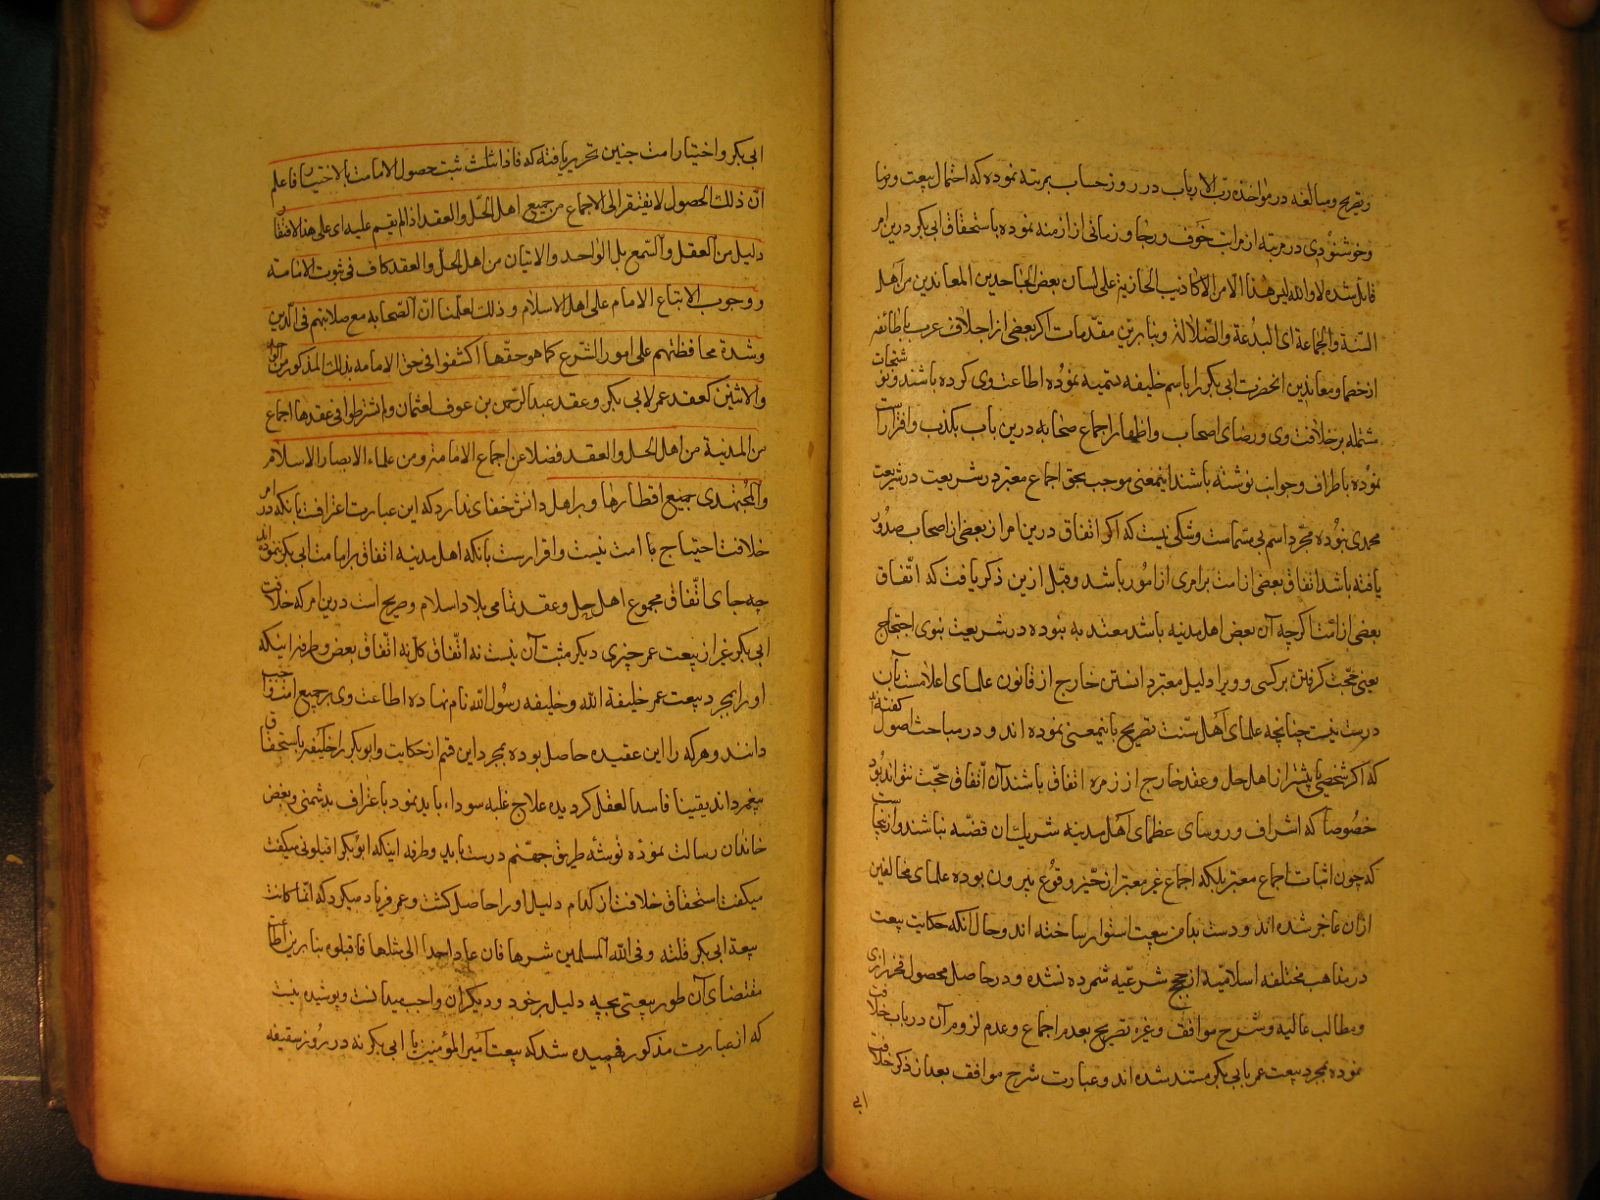 و تصریح و مبالغه در مواخذه رب الارباب در روز حساب بمرتبه نموده که احتمال بیعت و رضا
و خوشنودی در مرتبه از مراتب خوف و رجا و زمانی از ازمنه نموده باستحقاق ابی بکر درین امر
قائل شده لا والله لیس هذا الامر الا کاذیب الجاریة علی لسان بعض الجاحدین المعاندین من اهل
السنة والجماعة ای البدعة والضلالة و بنا برین مقدمات اگر بعضی از اجلاف عرب با طائفه
از خصما و معاندین انحضرت ابی بکر را باسم خلیفه تسمیه نموده اطاعت وی کرده باشند و
مشتمله بر خلافت وی و رضای اصحاب و اظهار اجماع صحابه درین باب بکذب و افترا
نموده باطراف و جوانب نوشته باشند اینمعنی موجب تحقق اجماع معتبر در شریعت
محمدی نبوده مجرد اسم بی مسماست و شکی نیست که اگر اتفاق درین امر از بعضی از اصحاب صدور
یافته باشد اتفاق بعضی از امت بر امری از امور باشد و قبل ازین ذکر یافت که اتفاق
بعضی از امت اگرچه آن بعض اهل مدینه باشد معتد به نبوده در شریعت نبوی احتجاج
یعنی حجت گرفتن بر کسی و ویرا دلیل معتبر دانستن خارج از قانون علمای اعلامست
درست نیست چنانچه علمای اهل سنت تصریح باینمعنی نموده اند و در مباحث اصول گفته اند
که اگر شخصی یا پیشتر از اهل حل و عقد خارج از زمره اتفاق باشند آن اتفاق حجت نتواند بود
خصوصا که اشراف و روسای عظمای اهل مدینه شریک ان قضیه نباشند و از اینجاست
که چون اثبات اجماع معتبر بلکه اجماع غیر معتبر از حیز وقوع بیرون بوده علمای مخالفین
ازان عاجز شده اند و دست بدامن بیعت استوار ساخته اند و حال انکه حکایت بیعت
در مذاهب مختلفه اسلامیه از حجج شرعیه شمرده نشده و در حاصل محصول فخر رازی
و مطالب عالیه و شرح مواقف و غیره تصریح بعدم اجماع و عدم لزوم آن در باب خلافت
نموده بمجرد بیعت عمر بابی بکر مستند شده اند و عبارت شرح مواقف بعد از ذکر خلافت
ابی
ابی بکر و اختیار امت چنین تحریر یافته که فاذا ثبت حصول الامامة بالاختیار فاعلم
ان ذلک الحصول لا یفتقر الی الاجماع من جمیع اهل الحل و العقد اذ لم یقم علیه ای علی هذا الافتقار
دلیل من العقل و السمع بل الواحد و الاثنان من اهل الحل و العقد کاف فی ثبوت الامامة
و وجوب الاتباع الامام علی اهل الاسلام و ذلک لعلمنا ان الصحابه مع صلابتهم فی الدین
و شدة محافظتهم علی امور الشرع کما هو حقها اکتفوا فی حق الامامه بذلک المذکور من الواحد
والاثنین کعقد عمر لابی بکر و عقد عبد الرحمن بن عوف لعثمان و لم یشترطوا فی عقدها اجماع
من المدینة من اهل الحل و العقد فضلا عن اجماع الامة و من علماء الامصار الاسلام
و المجتهدی جمیع اقطارها و بر اهل دانش خفای ندارد که این عبارت اعترافست بانکه در امر
خلافت احتیاج با امت نیست و اقرارست بانکه اهل مدینه اتفاق بر امامت ابی بکر ننموده اند
چه جای اتفاق مجموع اهل حل و عقد تمامی بلاد اسلام و صریح است درین امر که خلافت
ابی بکر غیر از بیعت عمر چیزی دیگر مثبت آن نیست نه اتفاق کل نه اتفاق بعض و طرفه اینکه
او را بمجرد بیعت عمر خلیفة الله و خلیفه رسول الله نام نهاده اطاعت وی بر جمیع امت واجب
دانند و هرکه را این عقیده حاصل بوده بمجرد این قسم از حکایت و ابو بکر را خلیفه باستحقاق
پیغمبر داند یقینا فاسد العقل گردیده علاج غلبه سودا باید نمود باعتراف بدشمنی و بغض
خاندان رسالت نموده توشه طریق جهنم درست باید و طرفه اینکه ابو بکر اقیلونی میگفت
میگفت استحقاق خلافت از کدام دلیل او را حاصل گشت و عمر فریاد میکرد که انما کانت
بیعة ابی بکر فلتة وقی الله المسلمین شرها فان عاد احدا الی مثلها فاقتلوه بنا برین اطا
مقتضای آن طور بیعتی بچه دلیل بر خود و دیگران واجب میدانست و پوشیده نیست
که از عبارت مذکور فهمیده شد که بیعت امیر المؤمنین با ابی بکر نه در روز سقیفه